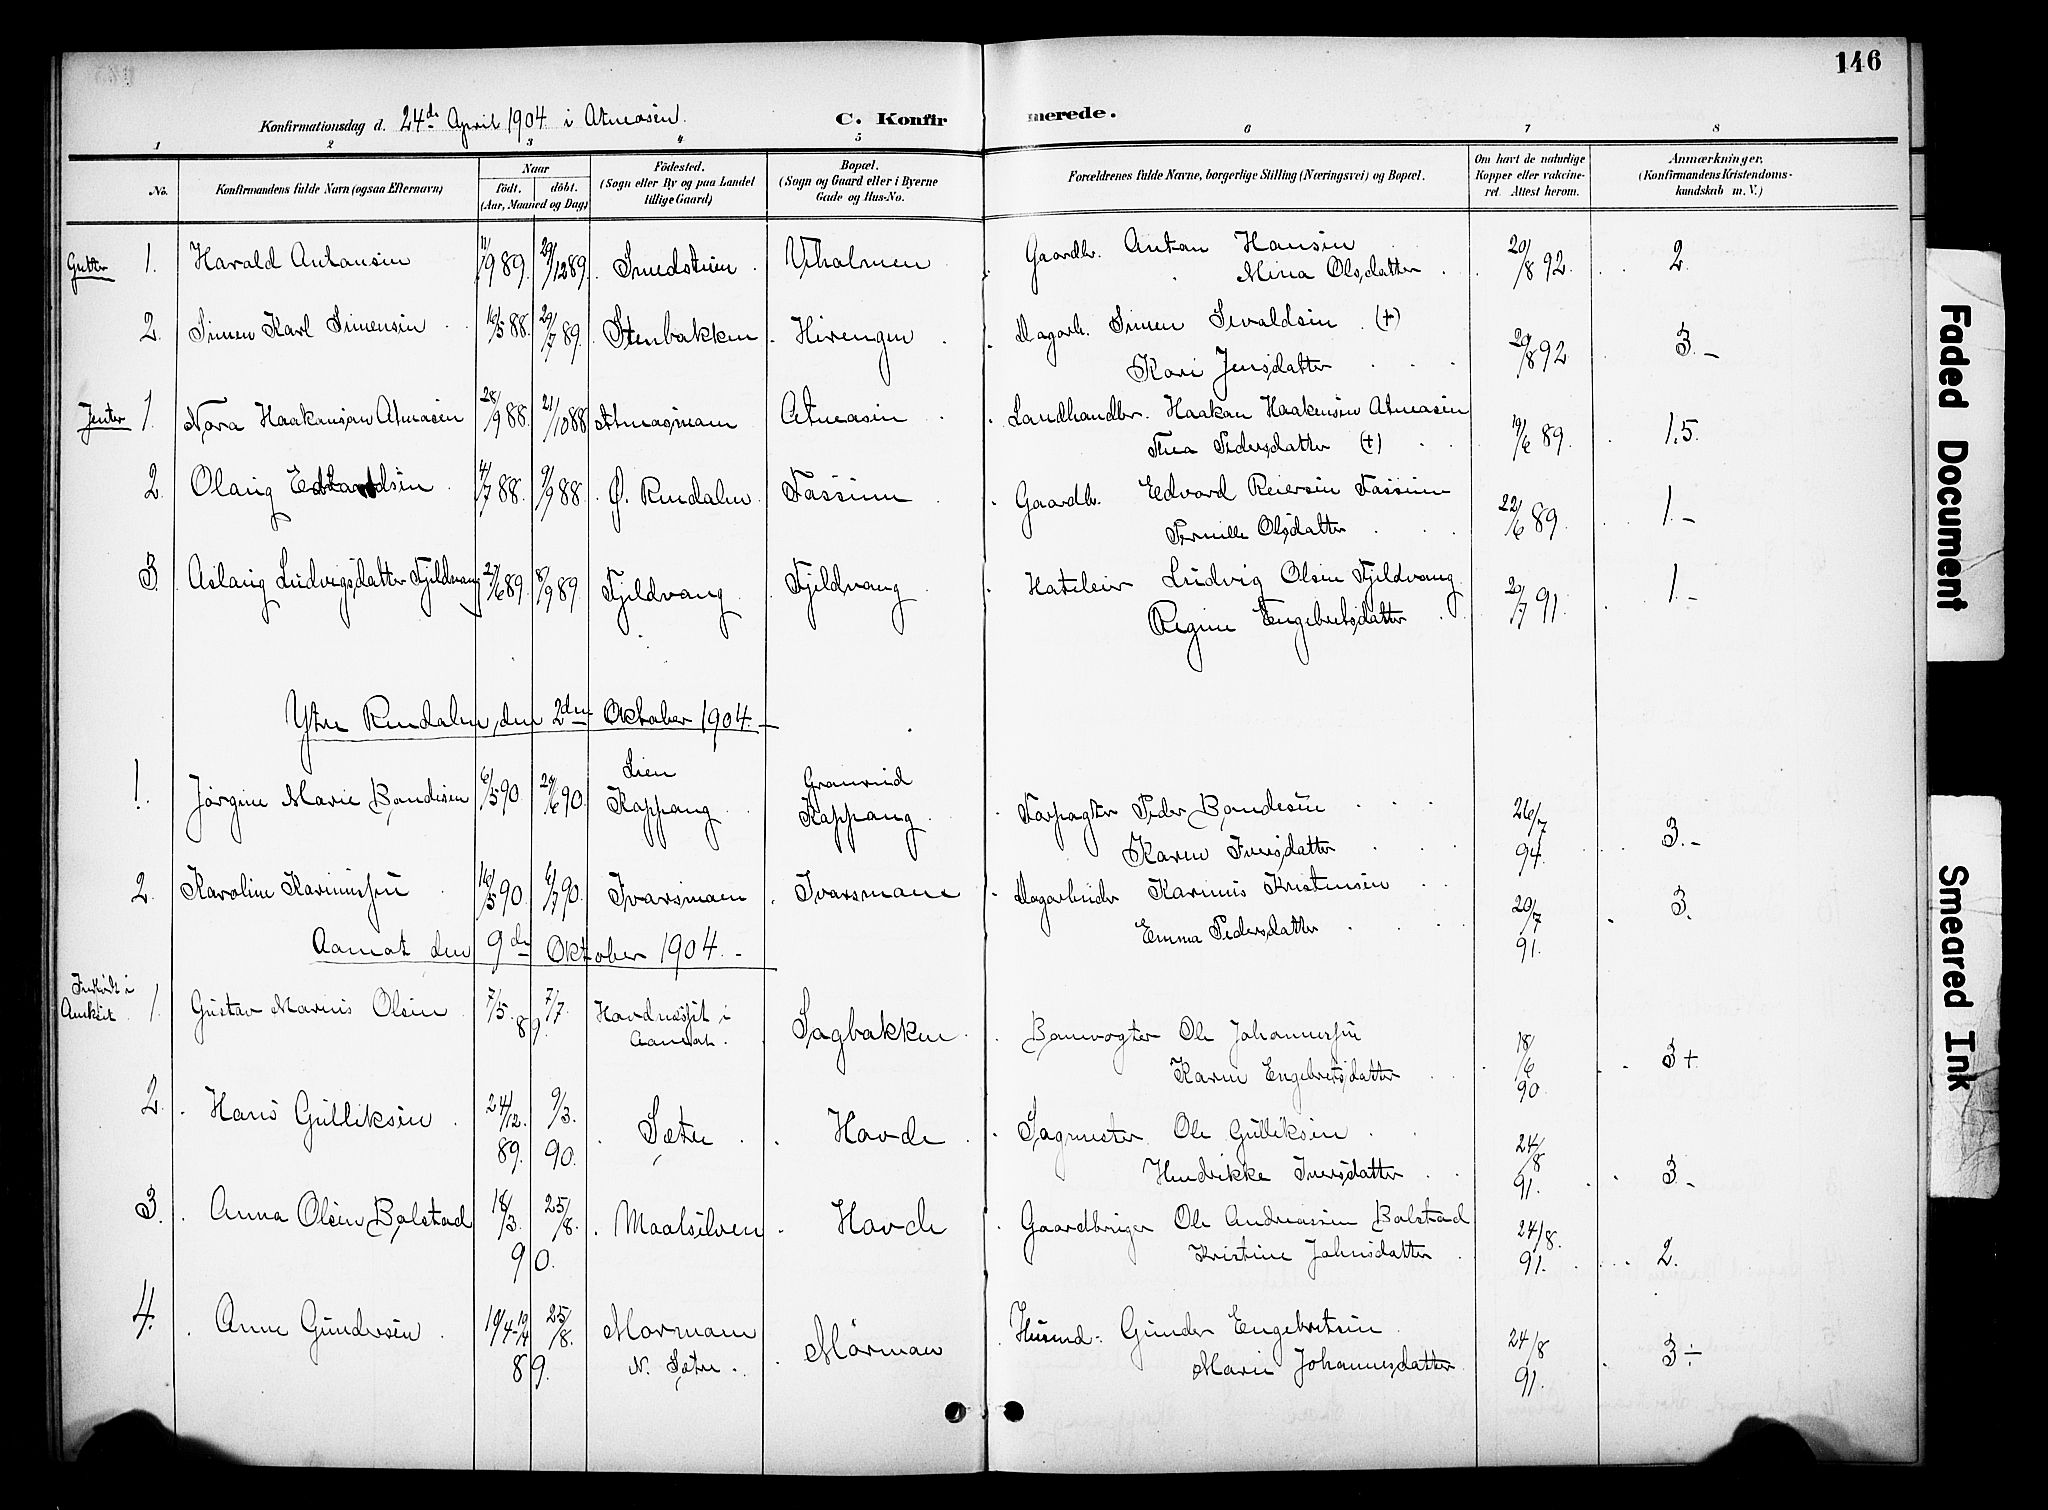 146
Konfirmationsdag d. 24de April 1904 i Atneosen. C. Konfirmerede.
1 2 3 4 5 6 7 8
No. Konfirmandens fulde Navn (ogsaa Efternavn) Naar født. døbt. (Aar, Maaned og Dag) Fødested. (Sogn eller By og paa Landet tillige Gaard) Bopæl. (Sogn og Gaard eller i Byerne Gade og Hus-No. Forældrenes fulde Navne, borgerlige Stilling (Næringsvei) og Bopæl. Om havt de naturlige Kopper eller vaccineret. Attest herom. Anmærkninger. (Konfirmandens Kristendomskundskab m. V.)
Gutter 1. Harald Antonsen 11/9 89. 29/12 89. Smedstuen Vtholmen Gaardb. Anton Hansen
Mina Olsdatter 20/8 92. 2.
2. Simen Karl Simensen 16/5 88. 29/7 89. Stenbakken Hirengen Dagarb. Simen Sevaldsen (+)
Kari Jensdatter 29/8 92 3.-
Jenter 1. Nora Haakonsen Atneosen 28/9 88. 21/10 88 Atneosmoen Atneosen Landhandler. Haakon Haakensen Atneosen
Thea Pedersdatter (+) 19/6 89. 1,5.
2. Olaug Edvardsen 4/7 88. 9/9 88. Ø. Rendalen Fossum Gaardb. Edvard Reiersen Fossum
Pernille Olsdatter 22/6 89. 1.-
3. Aslaug Ludvigsdatter Fjeldvang 27/6 89. 8/9 89. Fjeldvang Fjeldvang Ludvig Olsen Fjeldvang
Regine Engebretsdatter 29/7 91. 1.-
Ytre Rendalen, den 2den Oktober 1904.-
1. Jørgine Marie Bondesen 6/5 90. 29/6 90. Lien Koppang Granrud Koppang Forpagter Peder Bondesen
Karen Iversdatter 26/7 94. 3.-
2. Karoline Kariniussen 16/5 90. 6/7 90. Ivarsmoen Ivarsmoen Dagarbeider Karinius Kristensen
Emma Pedersdatter 20/7 91. 3.
Aamot den 9de Oktober 1904.-
1. Gustav Marius Olsen 7/5. 7/7. 89. i Aamot. Sagbakken Banevogter Ole Johannessen
Karen Engebretsdatter 18/6 90 3+
2. Hans Gulliksen 24/12. 89. 9/3. 90. Sætre Hovde Sagmester Ole Gulliksen
Hendrikke Iversdatter 24/8 91. 3.-
3. Anna Olsen Bolstad 18/3. 25/8. 90. Maalselven Hovde Gaardbruger Ole Andreassen Bolstad
Kristine Johnsdatter 24/8. 91. 2.
4. Anne Gundersen 19/4 25/8. 89. Mormoen N. Sætre. Mørmoen Husmd: Gunder Engebretsen
Marie Johannesdatter 24/8 91. 3÷
Faded Document
Smeared Ink